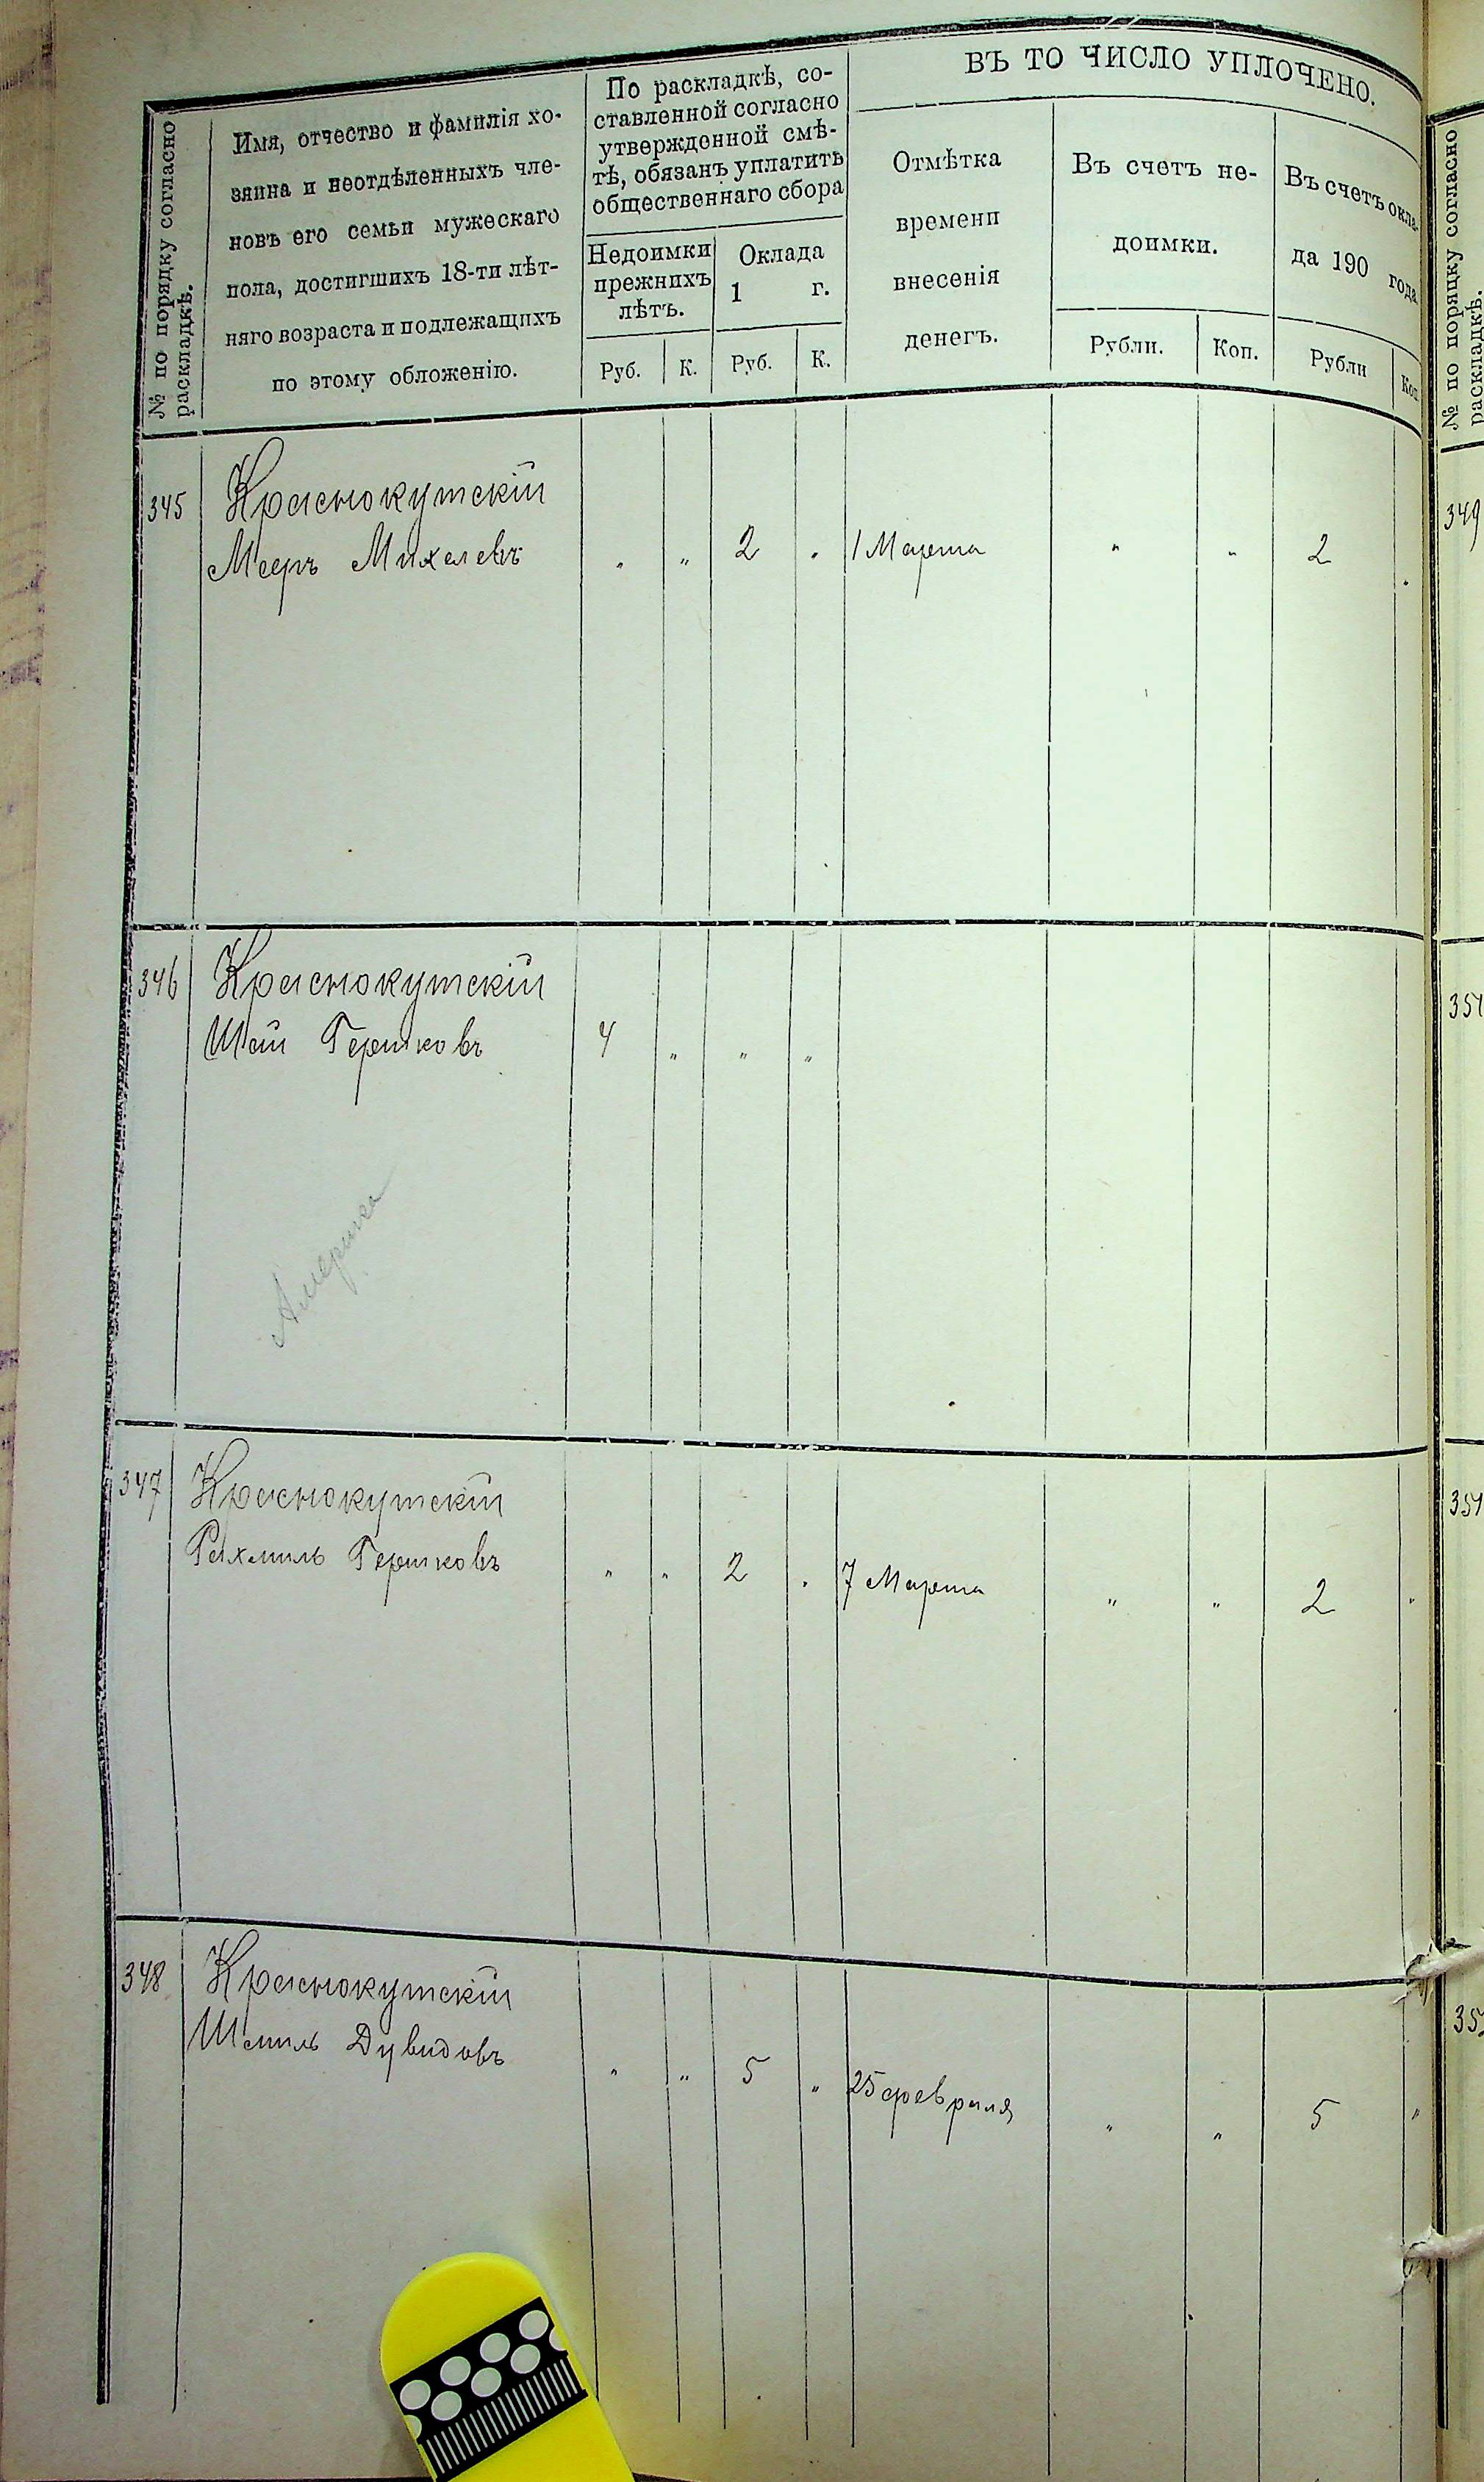 ВЪ ТО ЧИСЛО УПЛОЧЕНО.
№ по порядку согласно
раскладкѣ.
Имя, отчество и фамилія хо-
зяина и неотдѣленныхъ чле-
новъ его семьи мужескаго
пола, достигшихъ 18-ти лѣт-
няго возраста и подлежащихъ
по этому обложенію.
По раскладкѣ, со-
ставленной согласно
утвержденной смѣ-
тѣ, обязанъ уплатить
общественнаго сбора
Недоимки
прежнихъ
лѣтъ.
Оклада
1 г.
Руб. К. Руб. К.
Отмѣтка
времени
внесенія
денегъ.
Въ счетъ не-
доимки.
Рубли. Коп.
Въ счетъ окла-
да 190 года
Рубли Коп
345 Краснокутскій
Мееръ Михелевъ „ „ 2 „ 1 Марта „ „ 2 „
346 Краснокутскій
Шай Гершковъ 4 „ „ „
Америка
347 Краснокутскій
Рахмиль Гершковъ „ „ 2 „ 7 Марта „ „ 2 „
348 Краснокутскій
Шмиль Дувидовъ „ „ 5 „ 25 февраля „ „ 5 „
№ по порядку согласно
раскладкѣ.
349